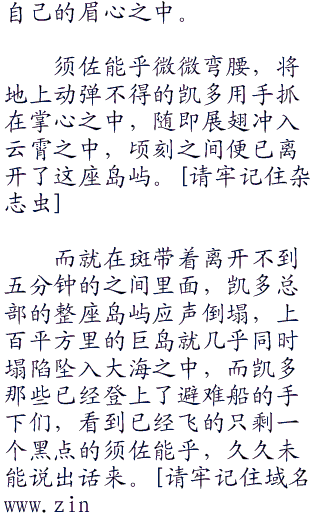 自己的眉心之中。
须佐能乎微微弯腰，将
地上动弹不得的凯多用手抓
在掌心之中，随即展翅冲入
云霄之中，顷刻之间便已离
开了这座岛屿。[请牢记住杂
志虫]
而就在斑带着离开不到
五分钟的之间里面，凯多总
部的整座岛屿应声倒塌，上
百平方里的巨岛就几乎同时
塌陷坠入大海之中，而凯多
那些已经登上了避难船的手
下们，看到已经飞的只剩一
个黑点的须佐能乎，久久未
能说出话来。[请牢记住域名
www.zin